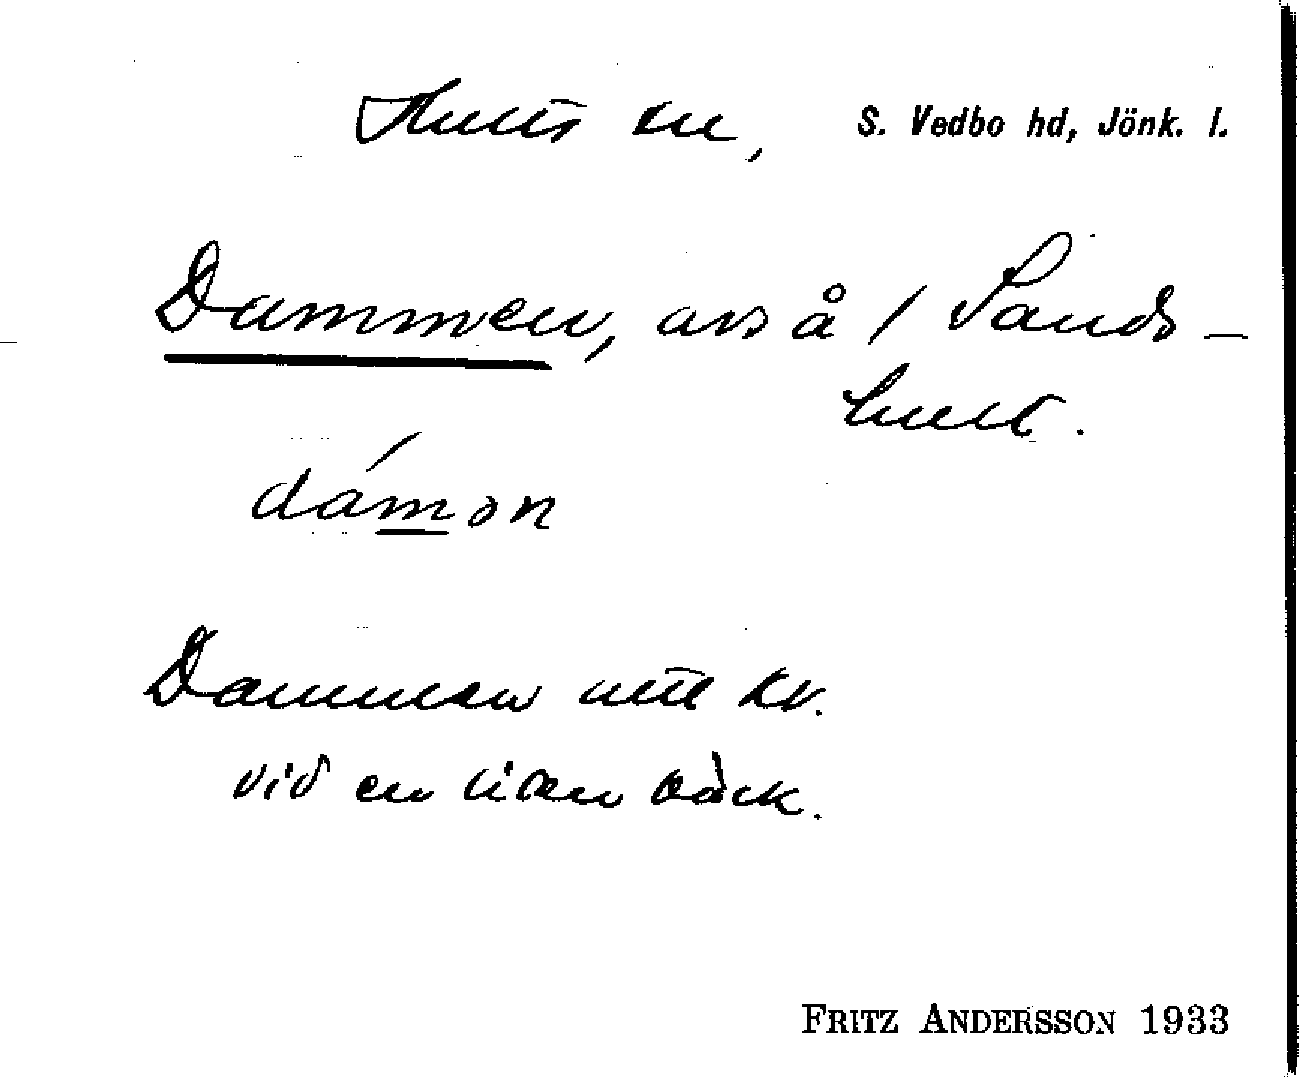 Hults sn, S. Vedbo hd, Jönk. l.
Dammen, avs å / Sands-
hult.
dámən
Dammen intill kv.
vid en liten bäck.
FRITZ ANDERSSON 1933